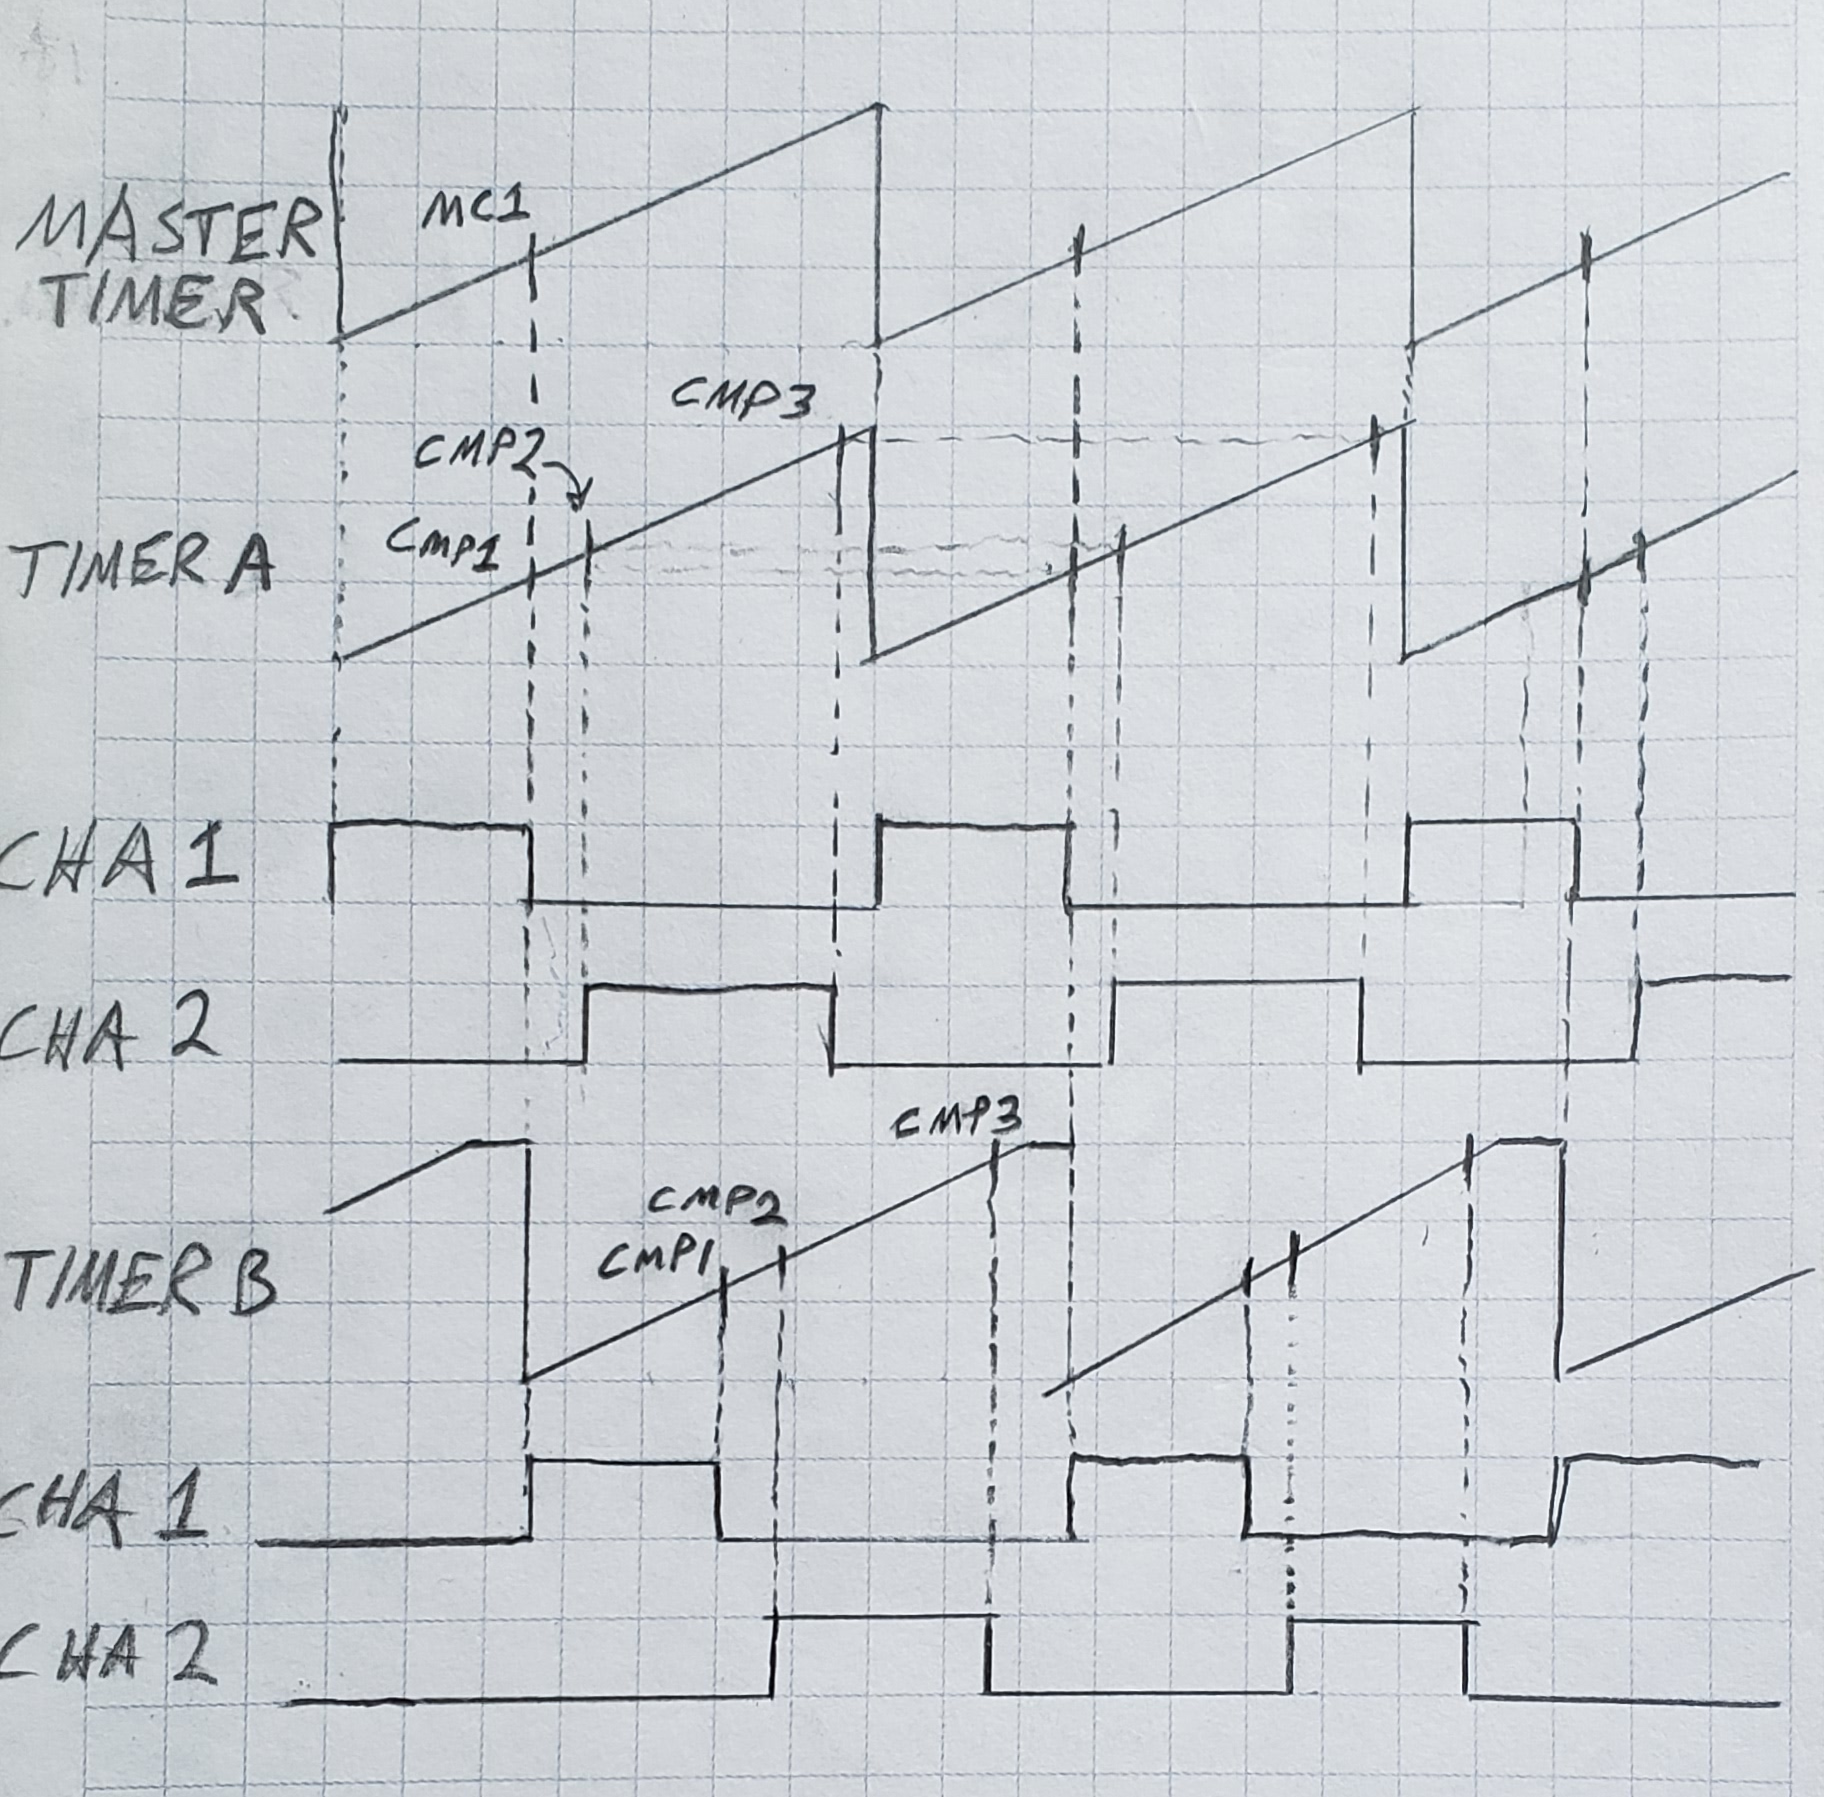 MC1
MASTER
TIMER
CMP3
CMP2
CMP1
TIMER A
CHA 1
CHA 2
CMP3
CMP2
CMP1
TIMER B
CHA 1
CHA 2